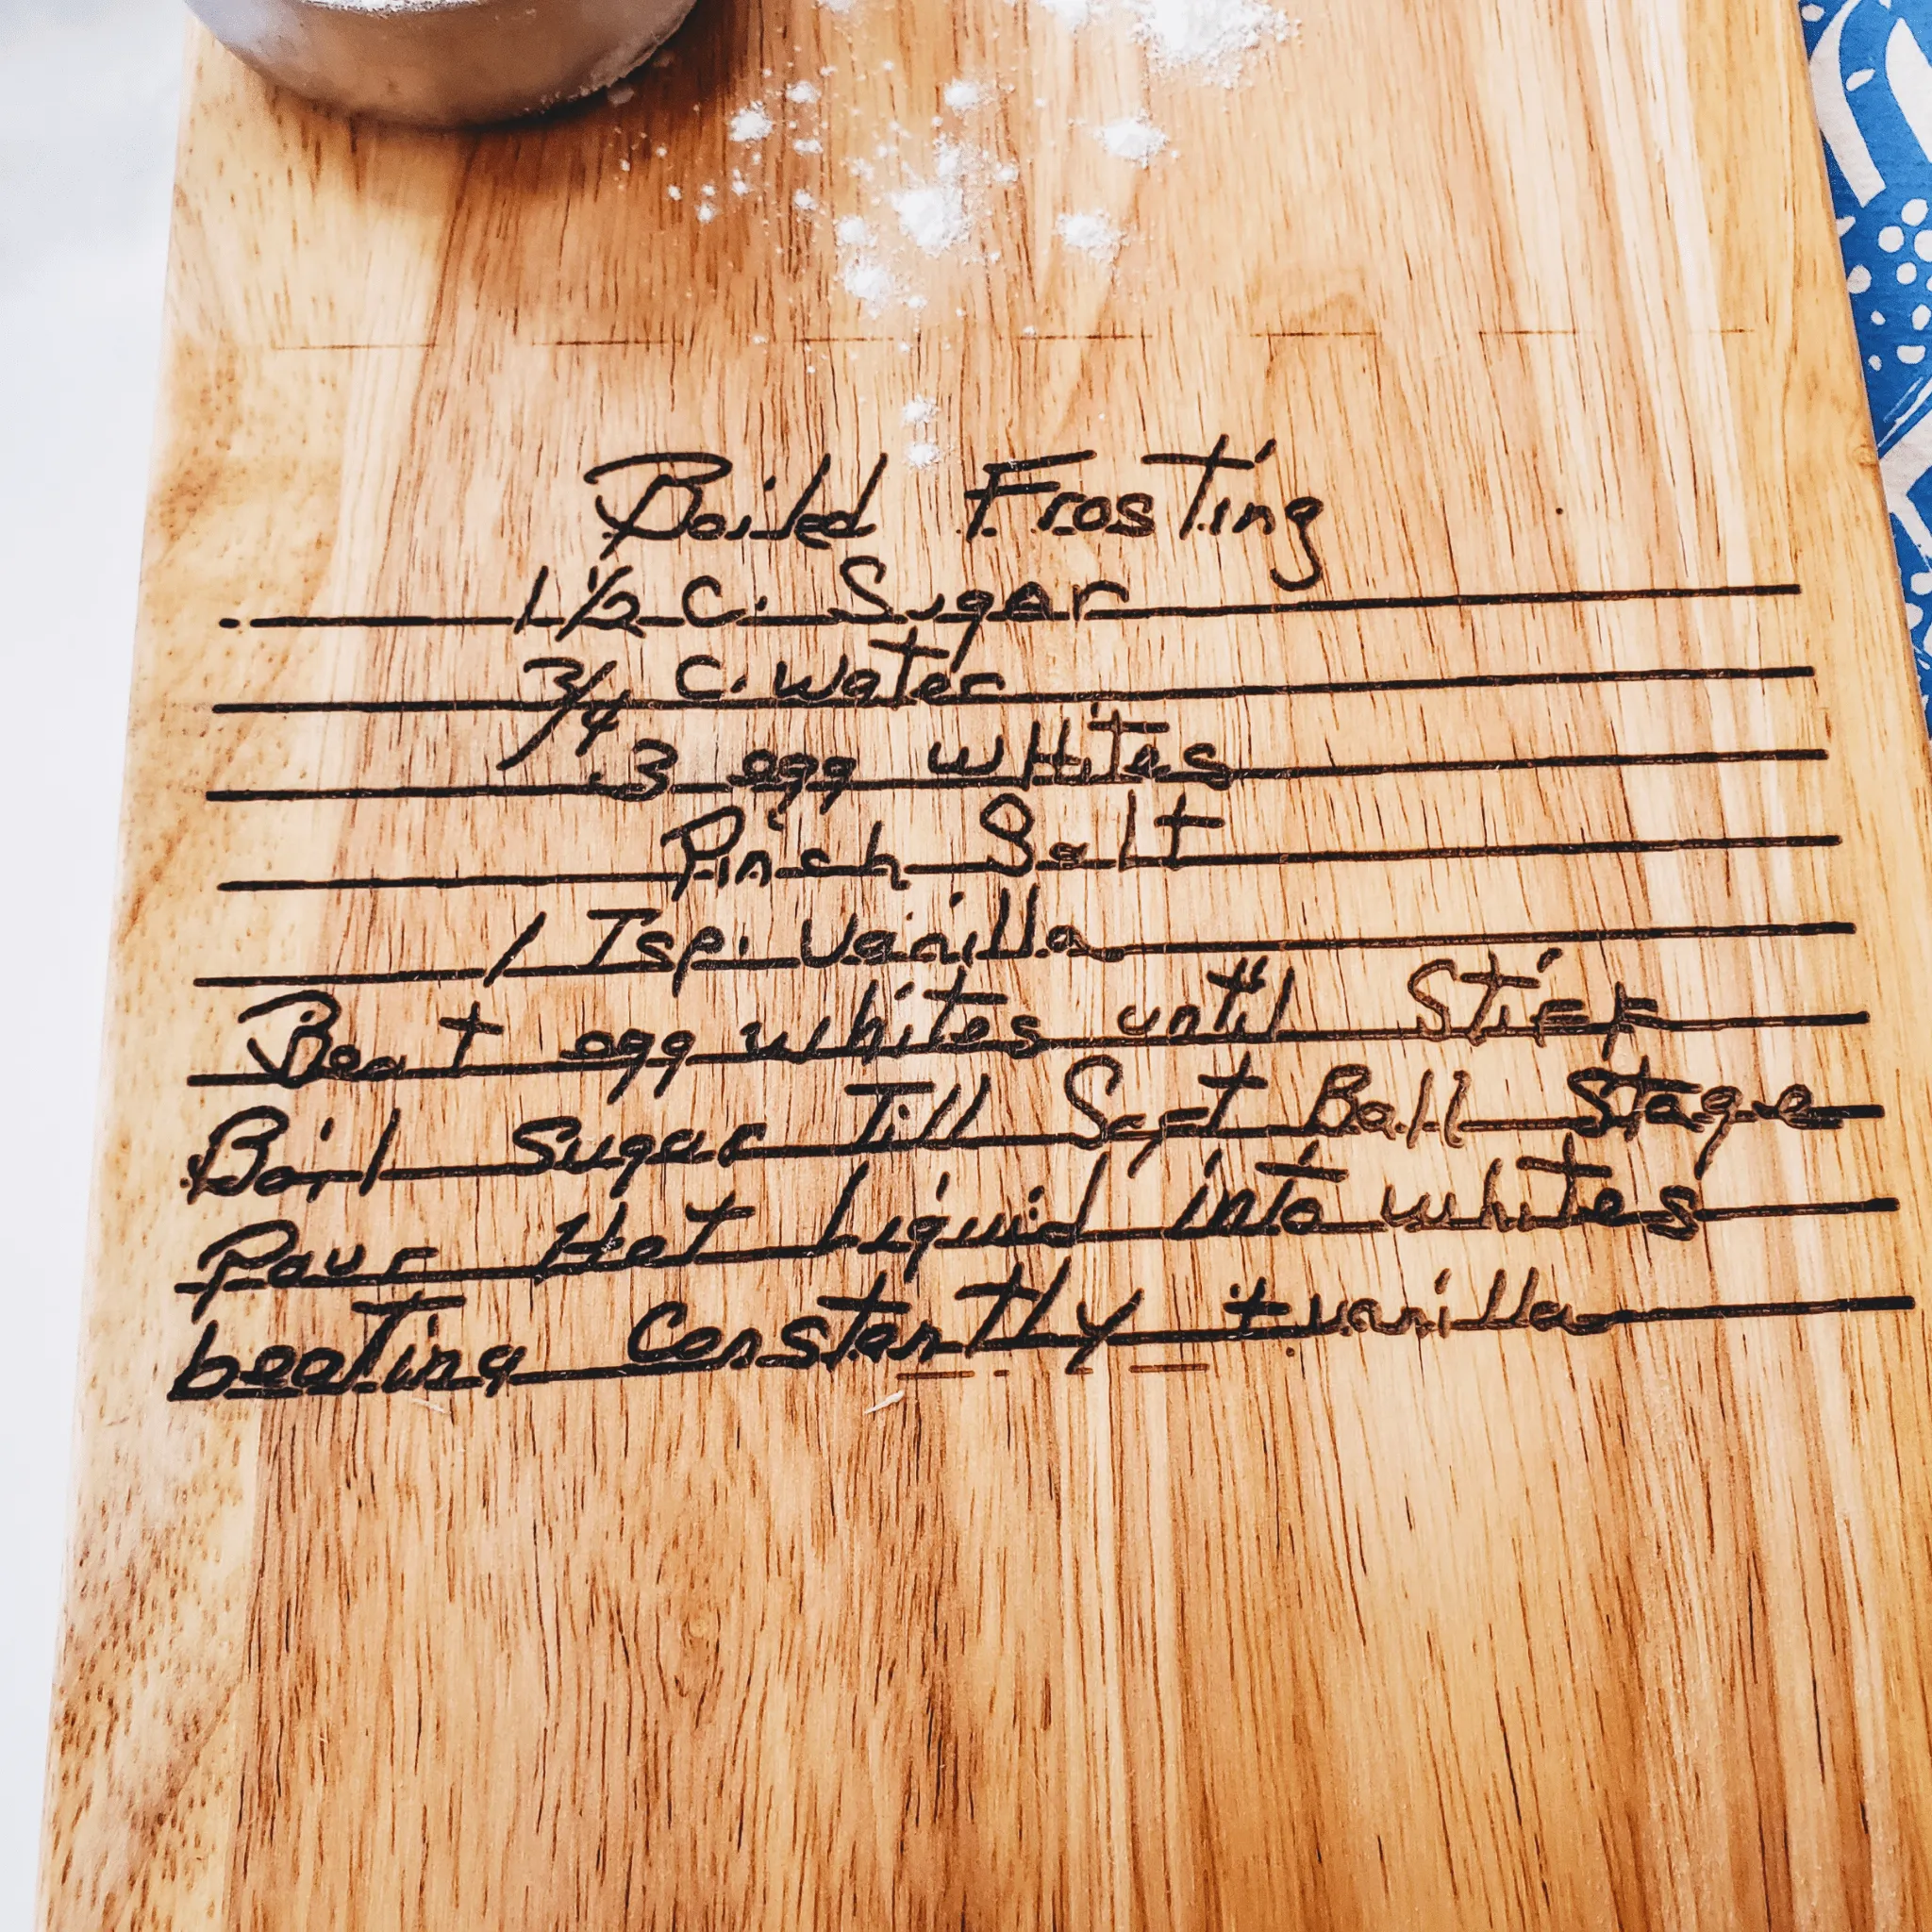 Boiled Frosting
1 1/2 C. Sugar
3/4 C. Water
3 egg whites
Pinch Salt
1 Tsp. Vanilla
Beat egg whites until Stiff
Boil Sugar Till Soft Ball Stage
Pour Hot Liquid into whites
beating Constantly + vanilla